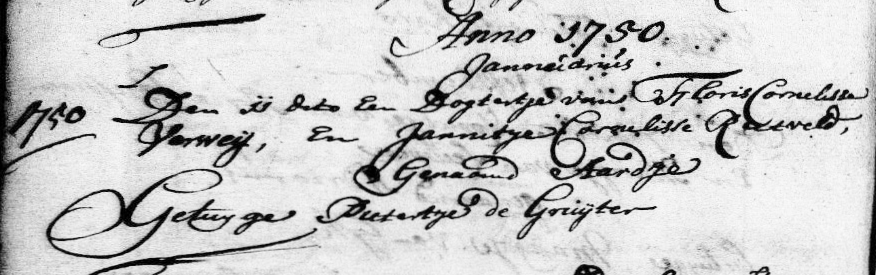 Anno 1750.
Janneiarius.
1750 Den 11 dito Een Dogtertje van Floris Cornelisse
Verweij, En Jannitje Cornelisse Rietveld,
Genaamd Aardje
Getuyge Pietertje de Gruijter